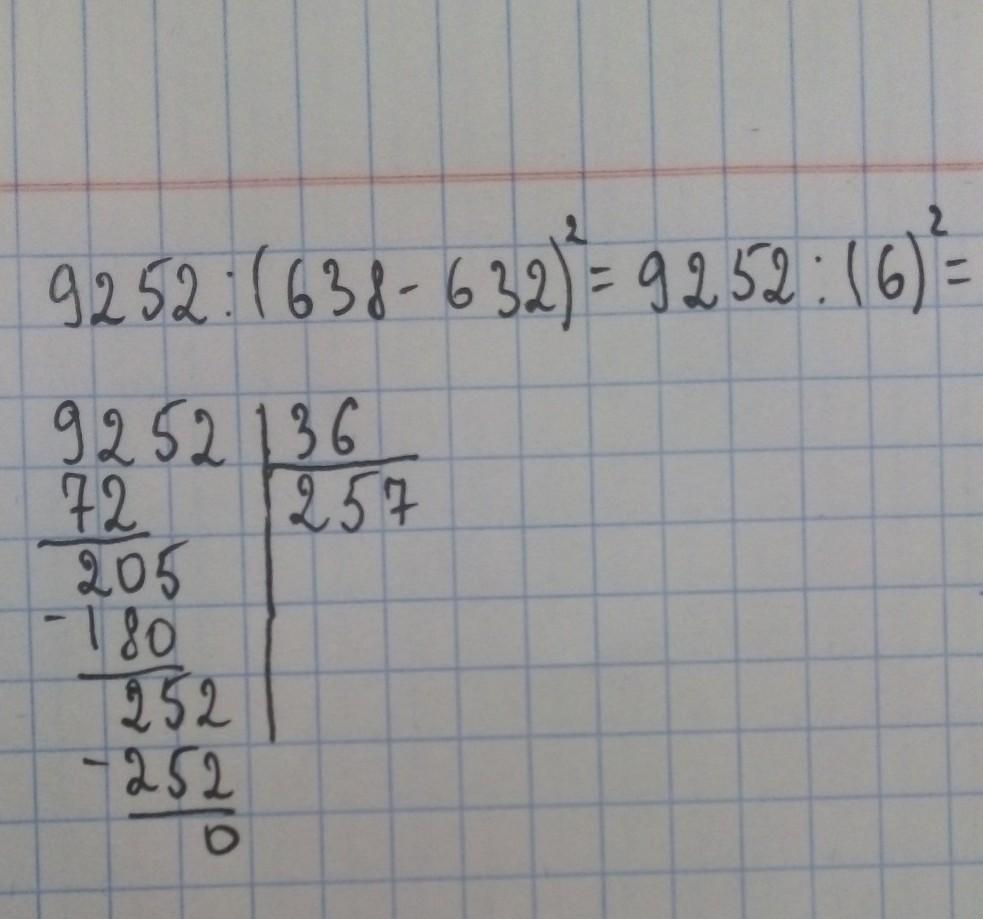 9252:(638-632)²=9252:(6)²=
9252 | 36
72 | 257
205
-180
252
-252
0